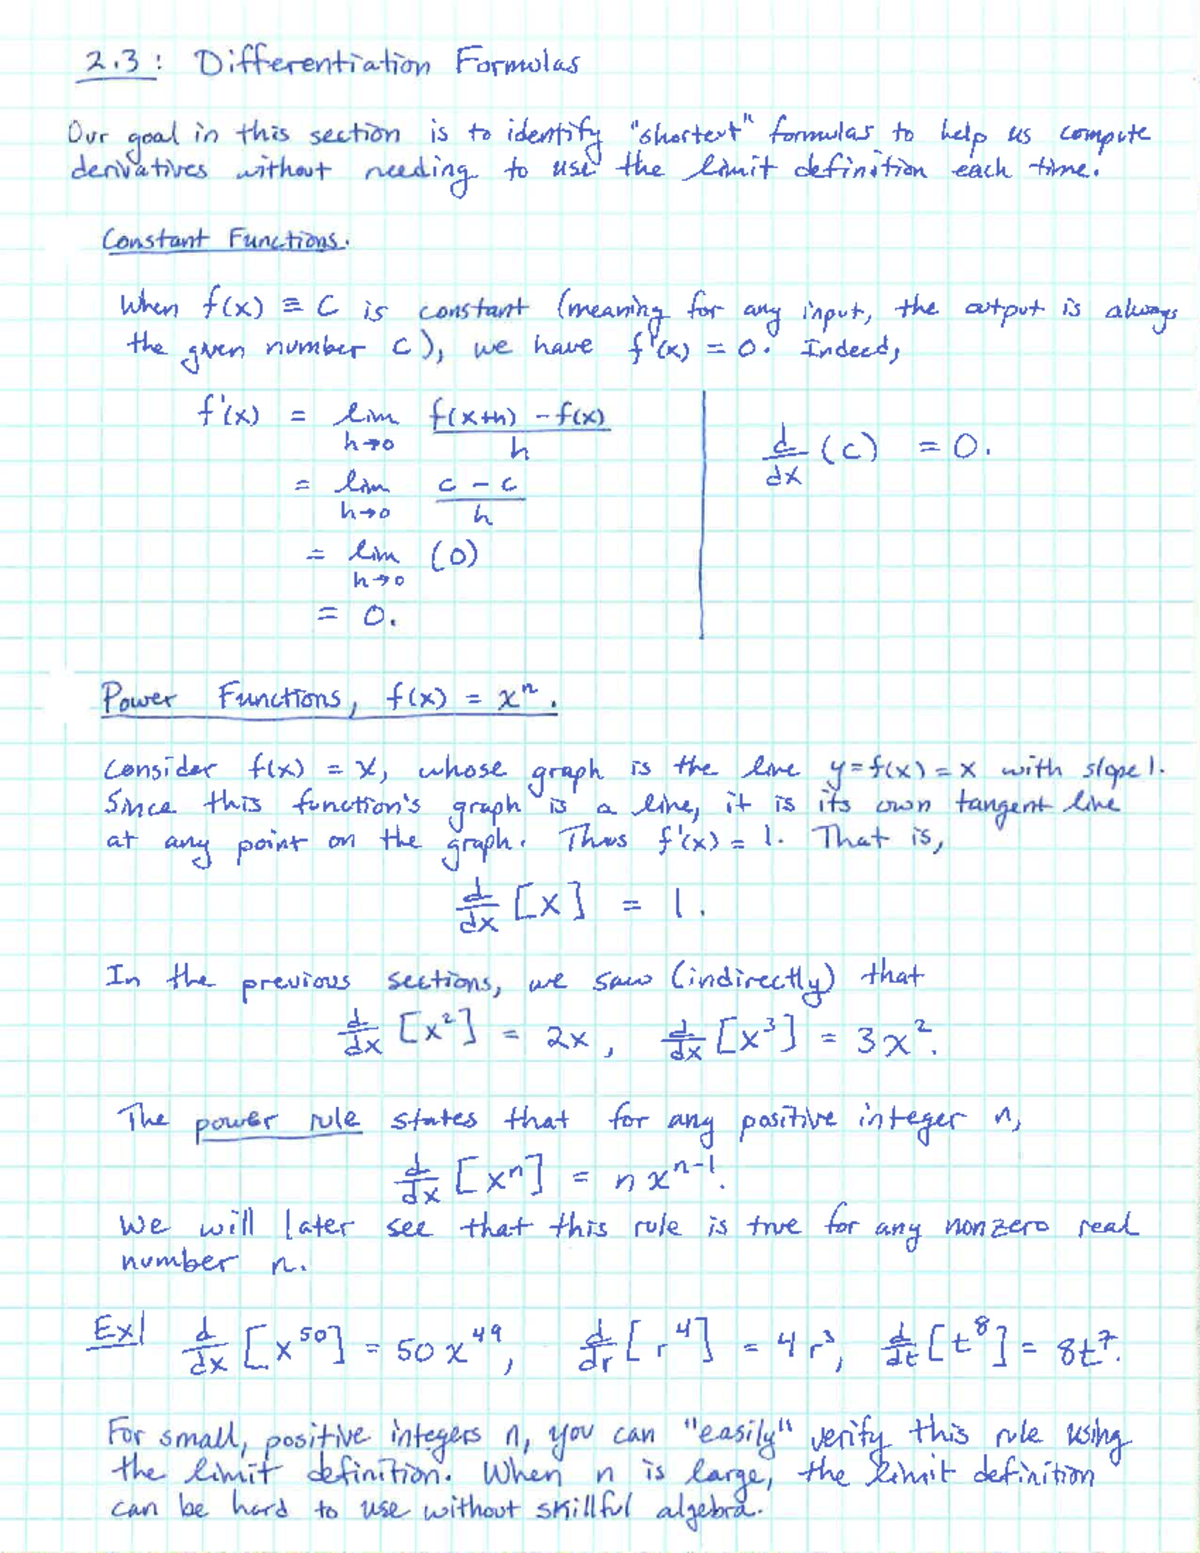 2.3: Differentiation Formulas
Our goal in this section is to identify "shortcut" formulas to help us compute
derivatives without needing to use the limit definition each time.
Constant Functions.
When f(x) ≡ C is constant (meaning for any input, the output is always
the given number C), we have f'(x) = 0. Indeed,
f'(x) = lim h→0 (f(x+h) - f(x))/h
= lim h→0 (c - c)/h
= lim h→0 (0)
= 0.
d/dx (c) = 0.
Power Functions, f(x) = xⁿ.
Consider f(x) = x, whose graph is the line y = f(x) = x with slope 1.
Since this function's graph is a line, it is its own tangent line
at any point on the graph. Thus f'(x) = 1. That is,
d/dx [x] = 1.
In the previous sections, we saw (indirectly) that
d/dx [x²] = 2x, d/dx [x³] = 3x².
The power rule states that for any positive integer n,
d/dx [xⁿ] = n xⁿ⁻¹.
We will later see that this rule is true for any nonzero real
number n.
Ex| d/dx [x⁵⁰] = 50 x⁴⁹, d/dr [r⁴] = 4 r³, d/dt [t⁸] = 8t⁷.
For small, positive integers n, you can "easily" verify this rule using
the limit definition. When n is large, the limit definition
can be hard to use without skillful algebra.